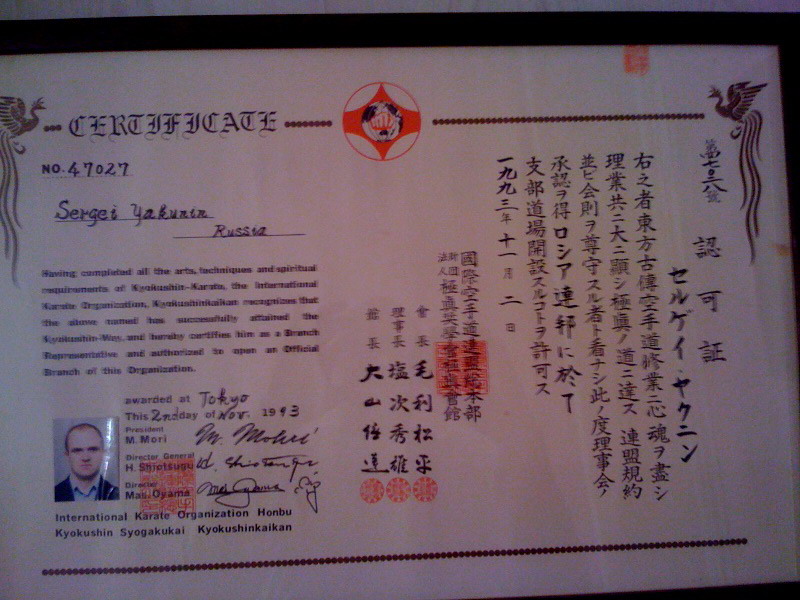 CERTIFICATE
NO. 47027
Sergei Yakunin
Russia
Having completed all the arts, techniques and spiritual
requirements of Kyokushin-Karate, the International
Karate Organization, Kyokushinkaikan recognizes that
the above named has successfully attained the
Kyokushin Way, and hereby certifies him as a Branch
Representative and authorized to open an Official
Branch of this Organization.
awarded at Tokyo
This 2nd day of Nov. 1993
President
M. Mori
Director General
H. Shiotsugu
Director
Mas. Oyama
International Karate Organization Honbu
Kyokushin Syogakukai Kyokushinkaikan
認可証
セルゲイ・ヤクニン
右之者東方古傳空手道修業ニ心魂ヲ盡シ
理業共ニ大ニ顕シ極眞ノ道ニ達ス 連盟規約
並ビ会則ヲ尊守スル者ト看ナシ此ノ度理事会ノ
承認ヲ得ロシア連邦に於て
支部道場開設スルコトヲ許可ス
一九九三年十一月二日
國際空手道連盟総本部
財団法人極眞奨學會極眞會館
會長 毛利松平
理事長 塩次秀雄
館長 大山倍達